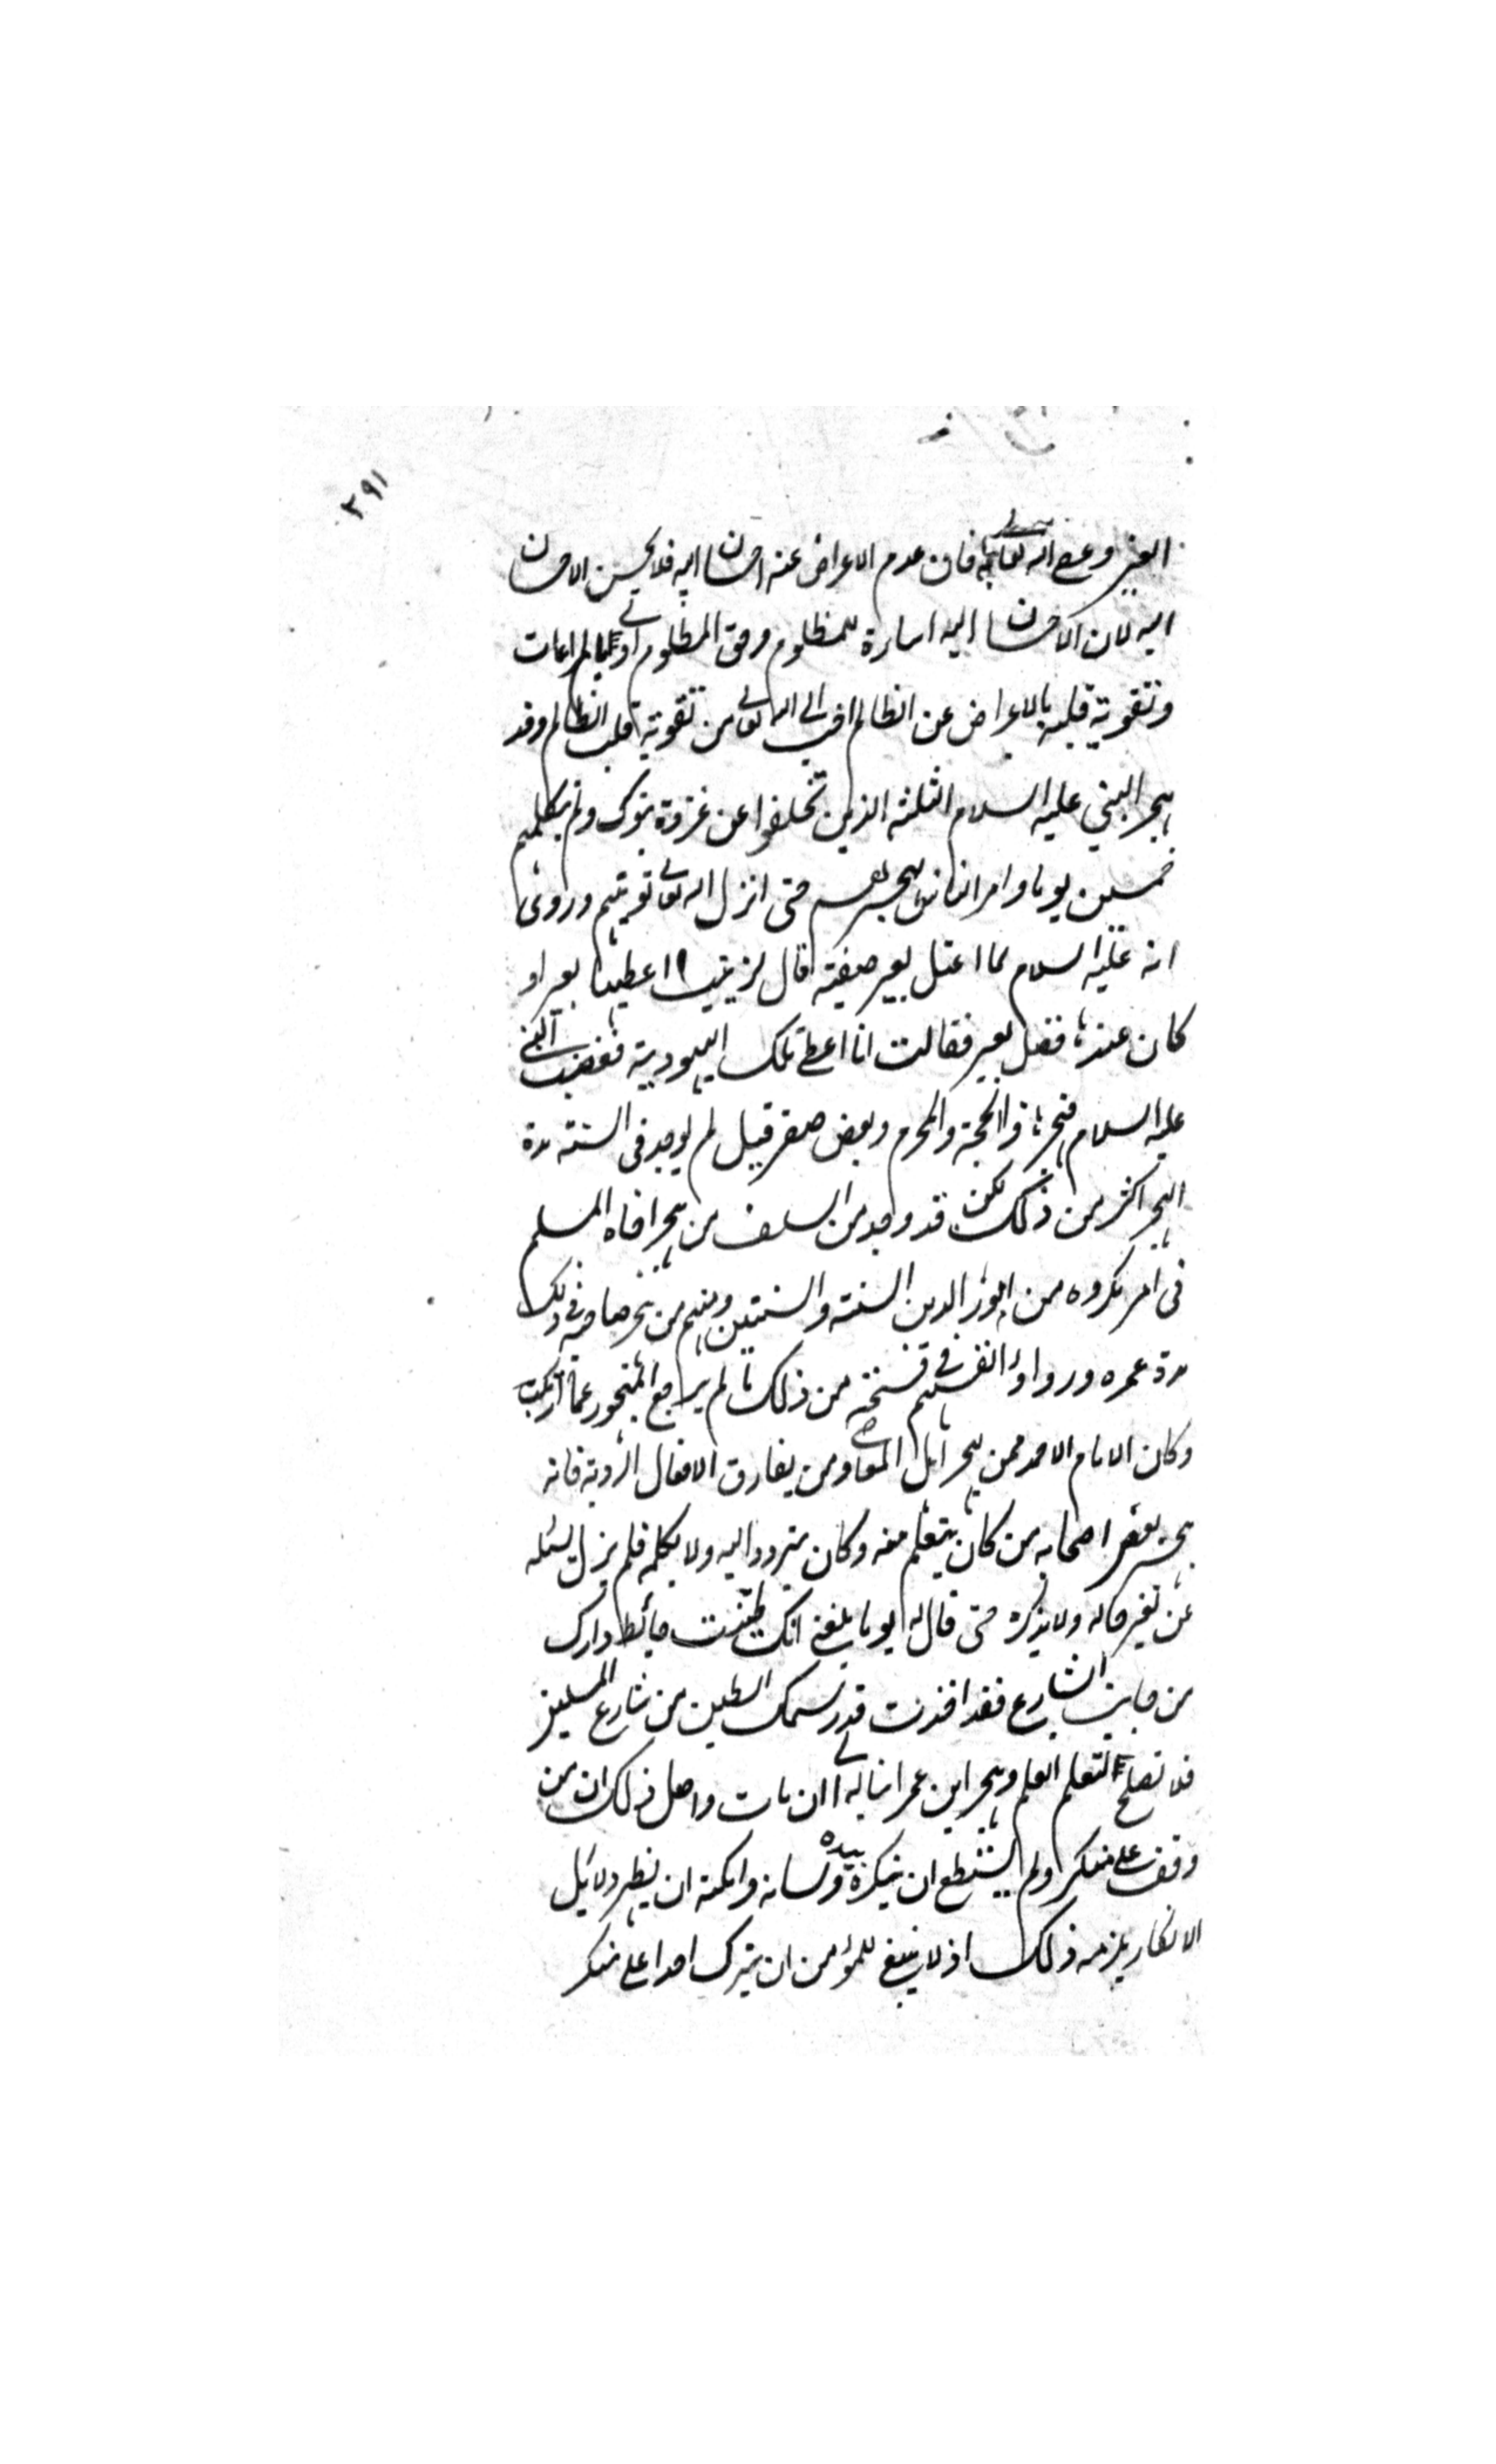 ٢٩١
الغير وعصى الله تعالى به فان عدم الاعراض عنه احسان اليه فلا يحسن الاحسان
اليه لان الاحسان اليه اساءة للمظلوم وحق المظلوم اولى بالمراعات
وتقوية قلبه بالاعراض عن الظالم احب الى الله تعالى من تقوية قلب الظالم وقد
هجر النبي عليه السلام الثلثة الذين تخلفوا عن غزوة تبوك ولم يكلمهم
خمسين يوما وامر الناس بهجرهم حتى انزل الله تعالى توبتهم وروى
انه عليه السلام لما اعتل بعير صفية قال لزينب اعطيها بعيرا و
كان عندها فضل بعير فقالت انا اعطى تلك اليهودية فغضب النبى
عليه السلام فهجرها ذا الحجة والمحرم وبعض صفر قيل لم يوجد فى السنة مدة
الهجر اكثر من ذلك لكن قد وجد من السلف من هجر اخاه المسلم
فى امر مكروه من امور الدين السنة والسنتين ومنهم من هجر صاحبه فى ذلك
مدة عمره وراوا انفسهم فى فسحة من ذلك ما لم يراجع المهجور عما ارتكبه
وكان الامام الاحمد ممن يهجر اهل المعاصى ومن يقارف الافعال الردية فانه
هجر بعض اصحابه من كان يتعلم منه وكان يتردد اليه ولا يكلمه فلم يزل يسئله
عن تغير حاله ولا يذكره حتى قال له يوما بلغنى انك طينت حائط دارك
من جانب الشارع فقد اخذت قدر سمك الطين من شارع المسلمين
فلا تصلح لتعلم العلم وهجر ابن عمر ابنا له الى ان مات واصل ذلك ان من
وقف على منكر ولم يستطع ان ينكره بيده ولسانه وامكنه ان يظهر دلائل
الانكار يلزمه ذلك اذ لا ينبغى للمؤمن ان يترك احدا على منكر